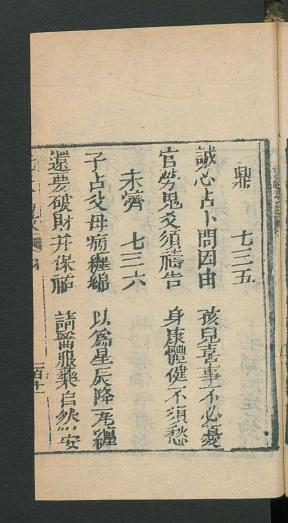 鼎 七三五
誠心占卜問因由 孩兒喜事不必憂
官勞鬼爻須禱告 身康體健不須愁
未濟 七三六
子占父母病纏綿 以為星辰降元纏
還要破財并保福 請醫服藥自然安